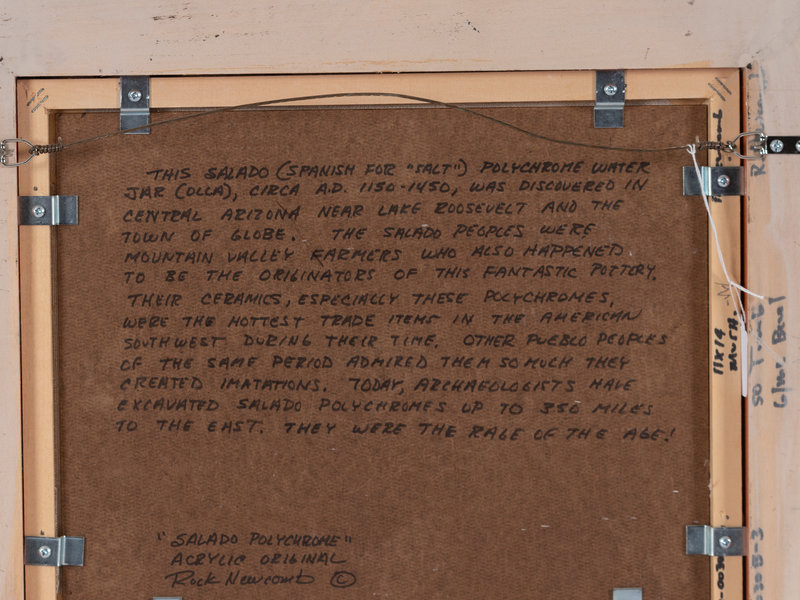 THIS SALADO (SPANISH FOR "SALT") POLYCHROME WATER
JAR (OLLA), CIRCA A.D. 1150-1450, WAS DISCOVERED IN
CENTRAL ARIZONA NEAR LAKE ROOSEVELT AND THE
TOWN OF GLOBE. THE SALADO PEOPLES WERE
MOUNTAIN VALLEY FARMERS WHO ALSO HAPPENED
TO BE THE ORIGINATORS OF THIS FANTASTIC POTTERY.
THEIR CERAMICS, ESPECIALLY THESE POLYCHROMES,
WERE THE HOTTEST TRADE ITEMS IN THE AMERICAN
SOUTHWEST DURING THEIR TIME. OTHER PUEBLO PEOPLES
OF THE SAME PERIOD ADMIRED THEM SO MUCH THEY
CREATED IMATATIONS. TODAY, ARCHAEOLOGISTS HAVE
EXCAVATED SALADO POLYCHROMES UP TO 350 MILES
TO THE EAST. THEY WERE THE RAGE OF THE AGE!
"SALADO POLYCHROME"
ACRYLIC ORIGINAL
Rock Newcomb ©
11x14